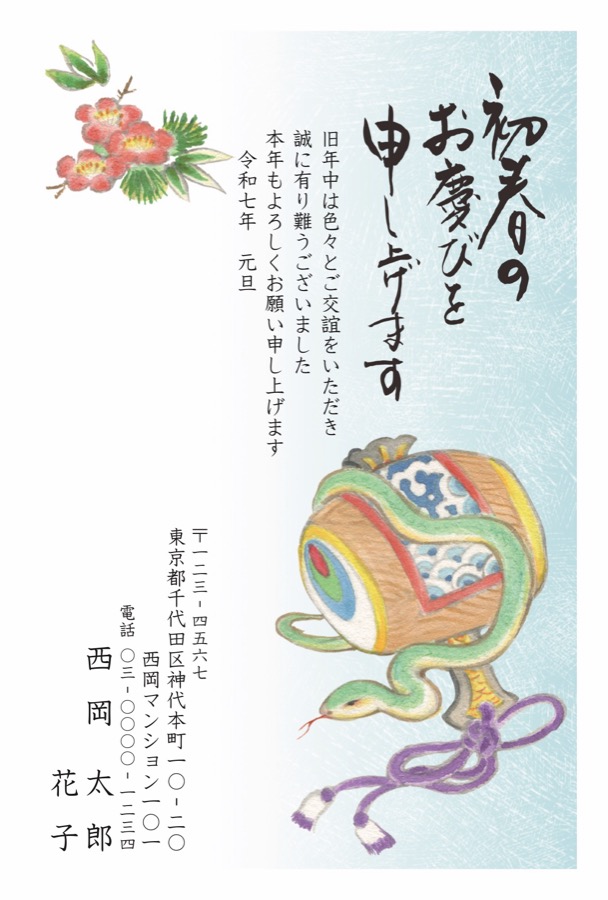 初春の
お慶びを
申し上げます
旧年中は色々とご交誼をいただき
誠に有り難うございました
本年もよろしくお願い申し上げます
令和七年　元旦
〒一二三-四五六七
東京都千代田区神代本町一〇-二〇
西岡マンション一〇一
電話　〇三-〇〇〇〇-一二三四
西岡　太郎
花子